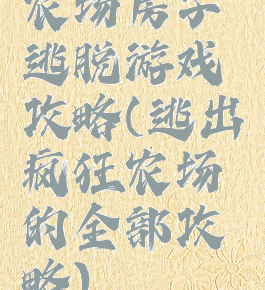 农场房子
逃脱游戏
攻略(逃出
疯狂农场
的全部攻
略)